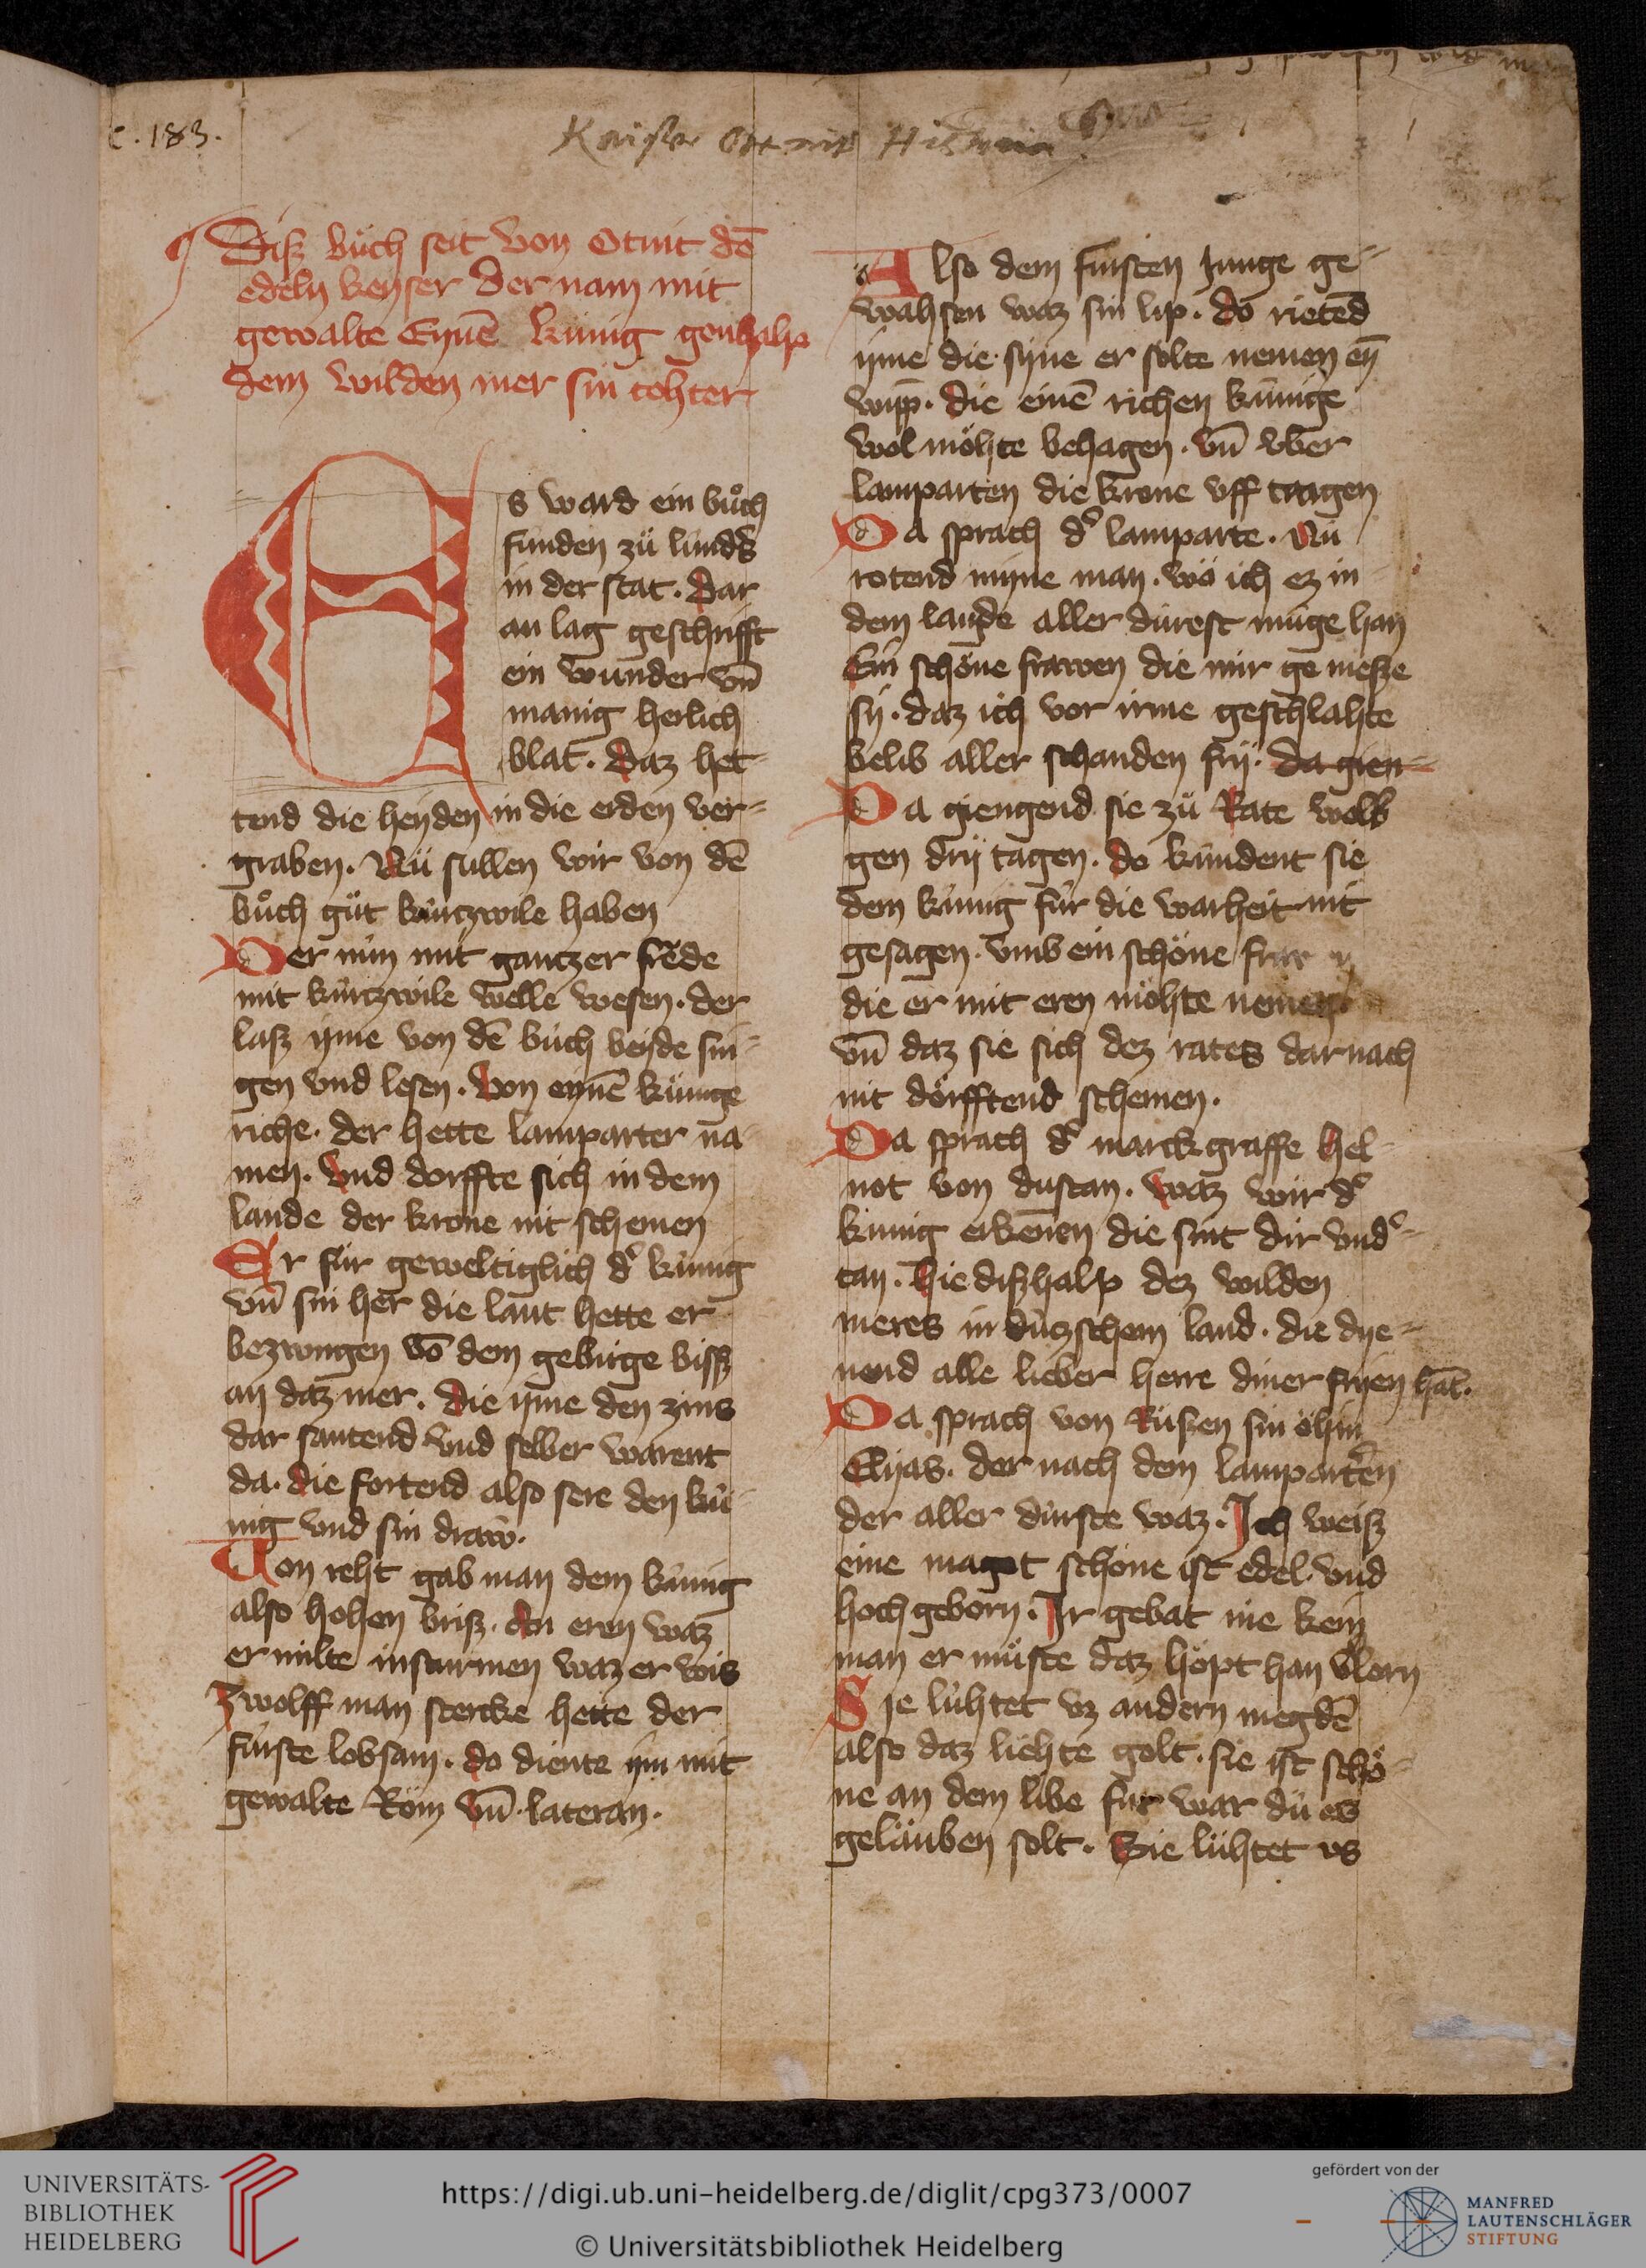 C. 183.
Kaiser Otnit
Disz bůch seit von Otnit dē
edeln keyser Der nam mit
gewalte Eynē künig genhalp
dem wilden mer sin tohter
Es ward ein bůch
funden zü sunders
in der stat. Dar
an lag geschrifft
ein wunder vn̄
manig herlich
blat. Daz het
tend die heyden in die erden ver-
graben. Nü sullen wir von dē
bůch güt kürtzwile haben
Der nün mit gantzer frēde
mit kürtzwile welle wesen. der
lasz yme von dē büch beyde sin-
gen vnd lesen. Von eynē künige
riche. der hette lamparter na
men. vnd dorffte sich in dem
lande der krone nit schemen
Er für geweltiglich dˀ künig
vn̄ sin her die laut hette er
bezwngen vō dem gebirge bissz
an daz mer. Die yme den zins
dar santend vnd selber warent
da. die fortend also sere den kü
nig vnd sin draw.
Von reht gab man dem künig
also hohen brisz. den eren waz
er milte in sturmen waz er wis
Zwolff man stercke hette der
fürste lobsam. do diente ym mit
gewalte Röm vn̄ lateran.
Also dem fürsten Junge ge-
wahsen waz sin lip. do rietēd
yme die syne er solte nemen eȳ
wyp̄. die einē richen künige
wol möhte behagen. vn̄ vber
lamparten die krone vff tragen
Da sprach dˀ lamparte. Nü
rotend myne man. wo ich ez in
dem lande aller dürest müge han
Ein schöne frawen die mir ge niesze
sy. daz ich vor irme geschlahte
belib aller schanden fry. da gien
Da giengend sie zü Rate wolb
gen dry tagen. do kündent sie
dem künig für die warheit nit
gesagen. vmb ein schöne
die er mit eren möhte nemen
vn̄ daz sie sich dez rates dar nach
nit dörfftend schemen.
Da sprach dˀ marckgraffe hel-
not von dustan. waz wir dˀ
künig erkenen die sint dir vndˀ-
tan. hie diszhalp dez wilden
meres in dützschem land. die dye-
nend alle lieber herre diner fryen hāt.
Da sprach von Rüszen sin öhin
Elyas. der nach dem lamparten
der aller dürste waz. Ich weisz
eine magt schöne ist edel vnd
hoch geborn. Ir gebat nie kein
man er müste daz höpt han vlorn
Sie lühtet vz andern megdē
also daz liehte golt. sie ist schö-
ne an dem libe für war dü es
geläuben solt. Sie lühtet vs
UNIVERSITÄTS-
BIBLIOTHEK
HEIDELBERG
https://digi.ub.uni-heidelberg.de/diglit/cpg373/0007
© Universitätsbibliothek Heidelberg
gefördert von der
MANFRED
LAUTENSCHLÄGER
STIFTUNG